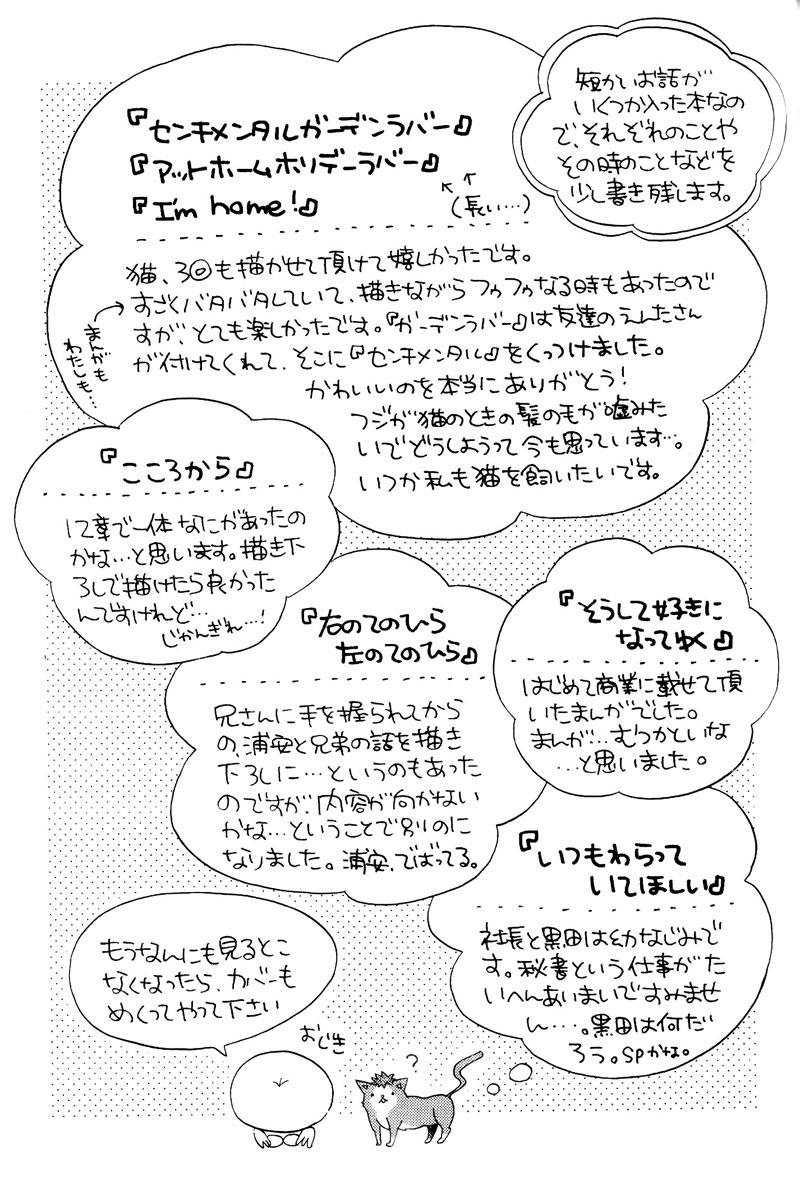 短かいお話が
いくつか入った本なの
で、それぞれのことや
その時のことなどを
少し書き残します。
『センチメンタルガーデンラバー』
『アットホームホリデーラバー』
『I'm home!』
(長い…)
猫、3回も描かせて頂けて嬉しかったです。
すごくバタバタしていて、描きながらフゥフゥなる時もあったので
すが、とても楽しかったです。『ガーデンラバー』は友達のえんたさん
が付けてくれて、そこに『センチメンタル』をくっつけました。
かわいいのを本当にありがとう!
フジが猫のときの髪の毛が嘘みた
いでどうしようって今も思っています…。
いつか私も猫を飼いたいです。
まんがも
わたしも…
『こころから』
12章で一体なにがあったの
かな…と思います。描き下
ろしで描けたら良かった
んですけれど…
じかんぎれ…!
『右のてのひら
左のてのひら』
兄さんに手を握られてから
の、浦安と兄弟の話を描き
下ろしに…というのもあった
のですが、内容が向かない
かな…ということで別のに
なりました。浦安、でばってる。
『そうして好きに
なってゆく』
はじめて商業に載せて頂
いたまんがでした。
まんが…むつかといな
…と思いました。
『いつもわらって
いてほしい』
社長と黒田は幼なじみで
す。秘書という仕事がた
いへんあいまいですみませ
ん…。黒田は何だ
ろう。SPかな。
もうなんにも見るとこ
なくなったら、カバーも
めくってやって下さい
おじぎ
?